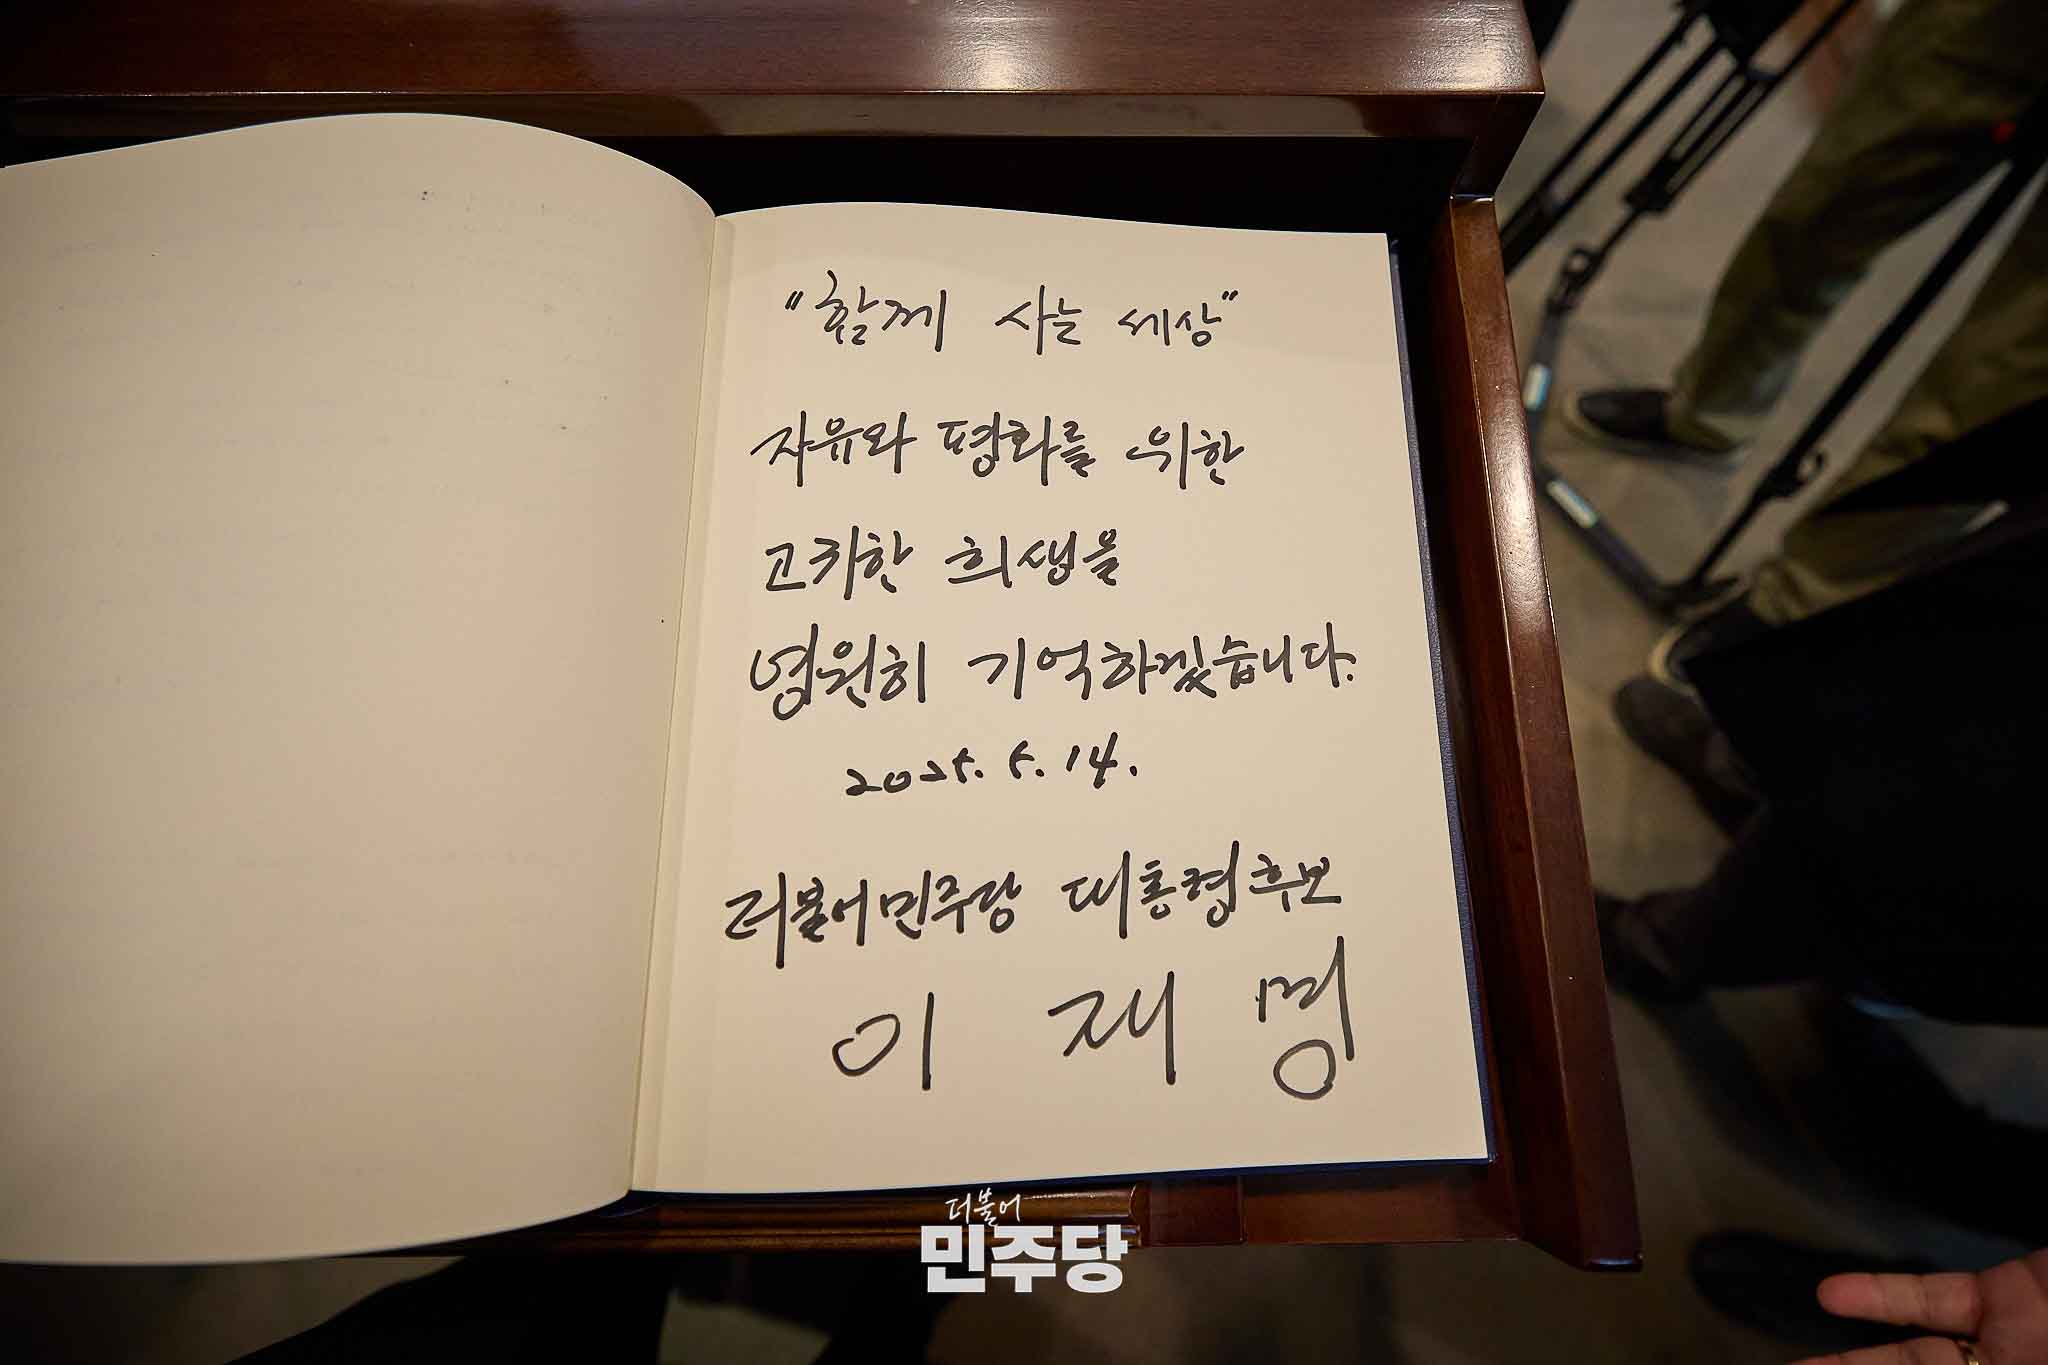 "함께 사는 세상"
자유와 평화를 위한
고귀한 희생을
영원히 기억하겠습니다.
2025. 5. 14.
더불어민주당 대통령후보
이 재 명
더불어
민주당